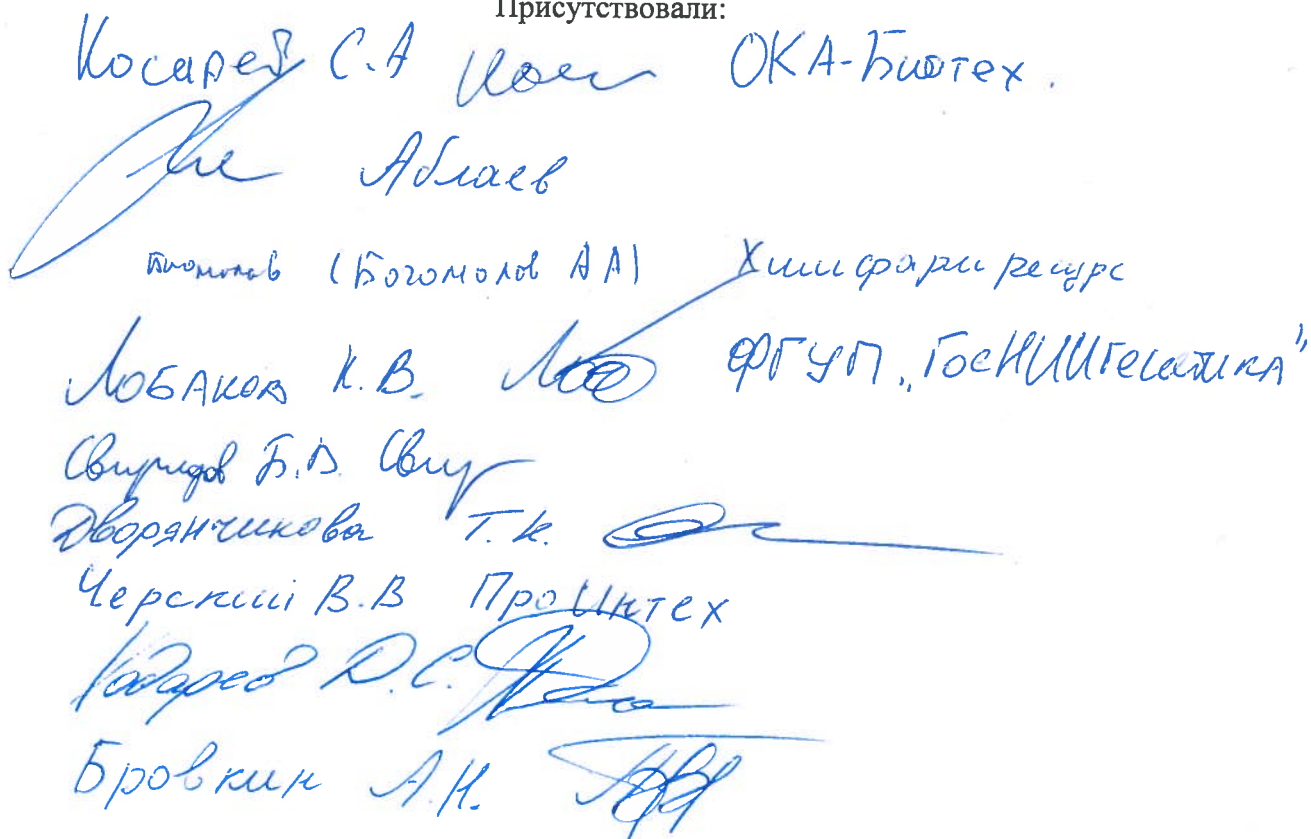 Присутствовали:
Косарев С.А ОКА-Биотех.
Аблаев
(Богомолов АА) Химфармресурс
Лобаков К.В. ФГУП „ГосНИИгенетика"
Свиридов Б.В. Свир
Дворянчикова Т.К.
Черский В.В ПроИнтех
Д.С.
Бровкин А.Н.